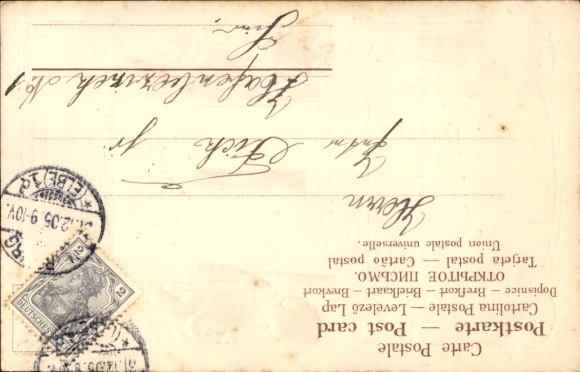 Carte Postale
Postkarte — Post card
Cartolina Postale — Levelező Lap
Dopisnice — Brefkort — Briefkaart — Brevkort
ОТКРЫТОЕ ПИСЬМО.
Tarjeta postal — Cartão postal
Union postale universelle.
Herrn
Fich jr
Hier,
DEUTSCHES
2
2
(ELBE) 1 d
12.05. 9-10 V.